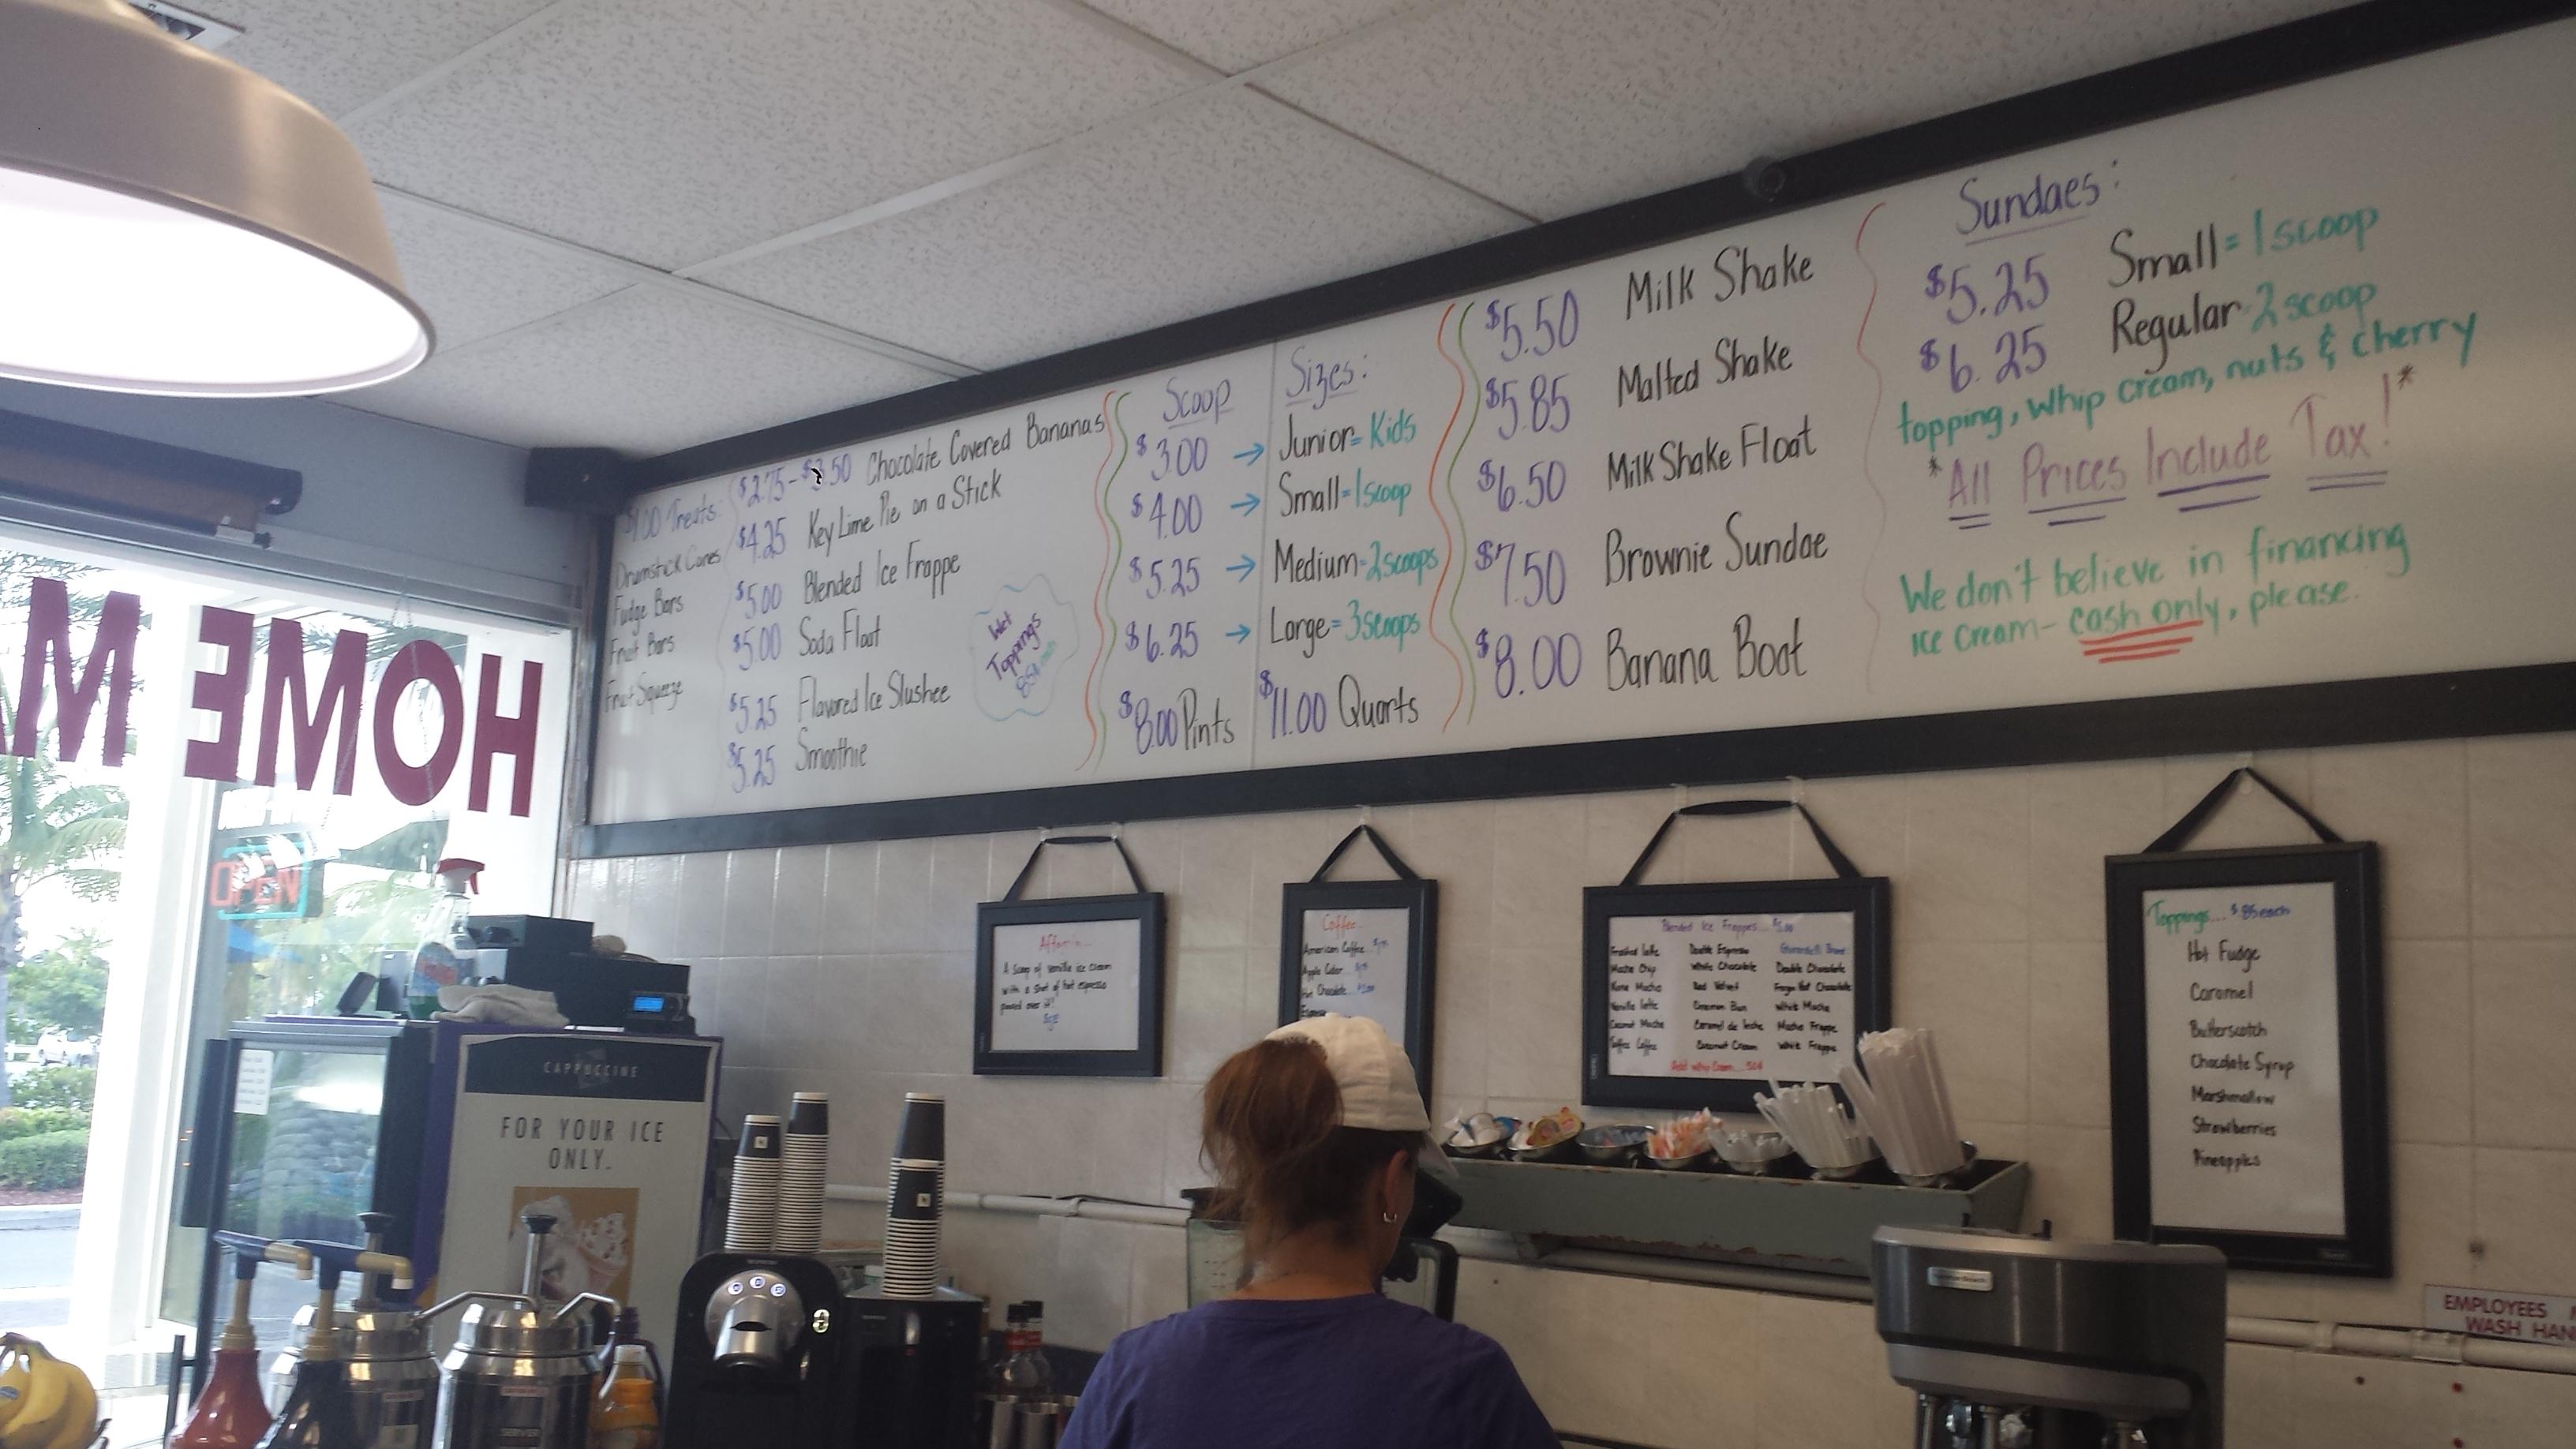 $1.00 Treats:
Drumstick Cones
Fudge Bars
Fruit Bars
Fruit Squeeze
$2.75-$3.50 Chocolate Covered Bananas
$4.25 Key Lime Pie on a Stick
$5.00 Blended Ice Frappe
$5.00 Soda Float
$5.25 Flavored Ice Slushee
$5.25 Smoothie
Wet
Toppings
85¢
Scoop Sizes:
$3.00 → Junior=Kids
$4.00 → Small=1scoop
$5.25 → Medium=2scoops
$6.25 → Large=3scoops
$8.00 Pints $11.00 Quarts
$5.50 Milk Shake
$5.85 Malted Shake
$6.50 Milk Shake Float
$7.50 Brownie Sundae
$8.00 Banana Boat
Sundaes:
$5.25 Small=1scoop
$6.25 Regular=2scoop
topping, whip cream, nuts & cherry
*All Prices Include Tax!*
We don't believe in financing
ice cream- cash only, please.
HOME M
OPEN
A scoop of vanilla ice cream
with a shot of hot espresso
poured over it!
Coffee
American Coffee
Apple Cider
Hot Chocolate
Blended Ice Frappes.... $5.00
Mocha Chip
Kona Mocha
Vanilla latte
Coconut Mocha
Toffee Coffee
Double Espresso
White Chocolate
Red Velvet
Cinnamon Bun
Caramel de leche
Coconut Cream
Double Chocolate
Frozen Hot Chocolate
White Mocha
Mocha Frappe
White Frappe
Add whip Cream.... 50¢
Toppings.... $.85each
Hot Fudge
Caramel
Butterscotch
Chocolate Syrup
Marshmallow
Strawberries
Pineapples
CAPPUCCINE
FOR YOUR ICE
ONLY.
SERVER
EMPLOYEES
WASH HAN